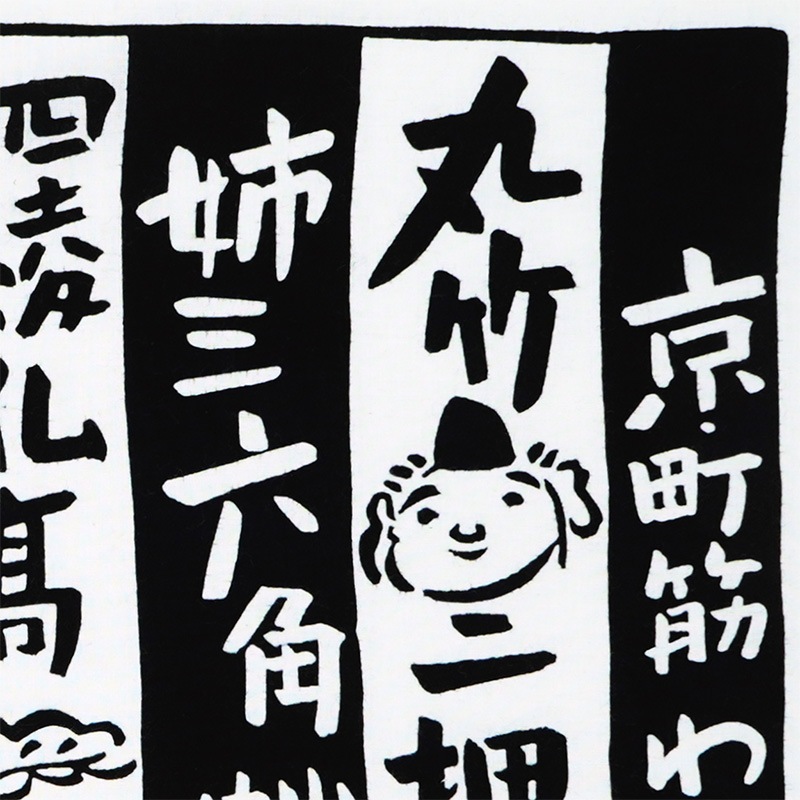 京町筋わ
丸竹二押
姉三六角
四綾仏高